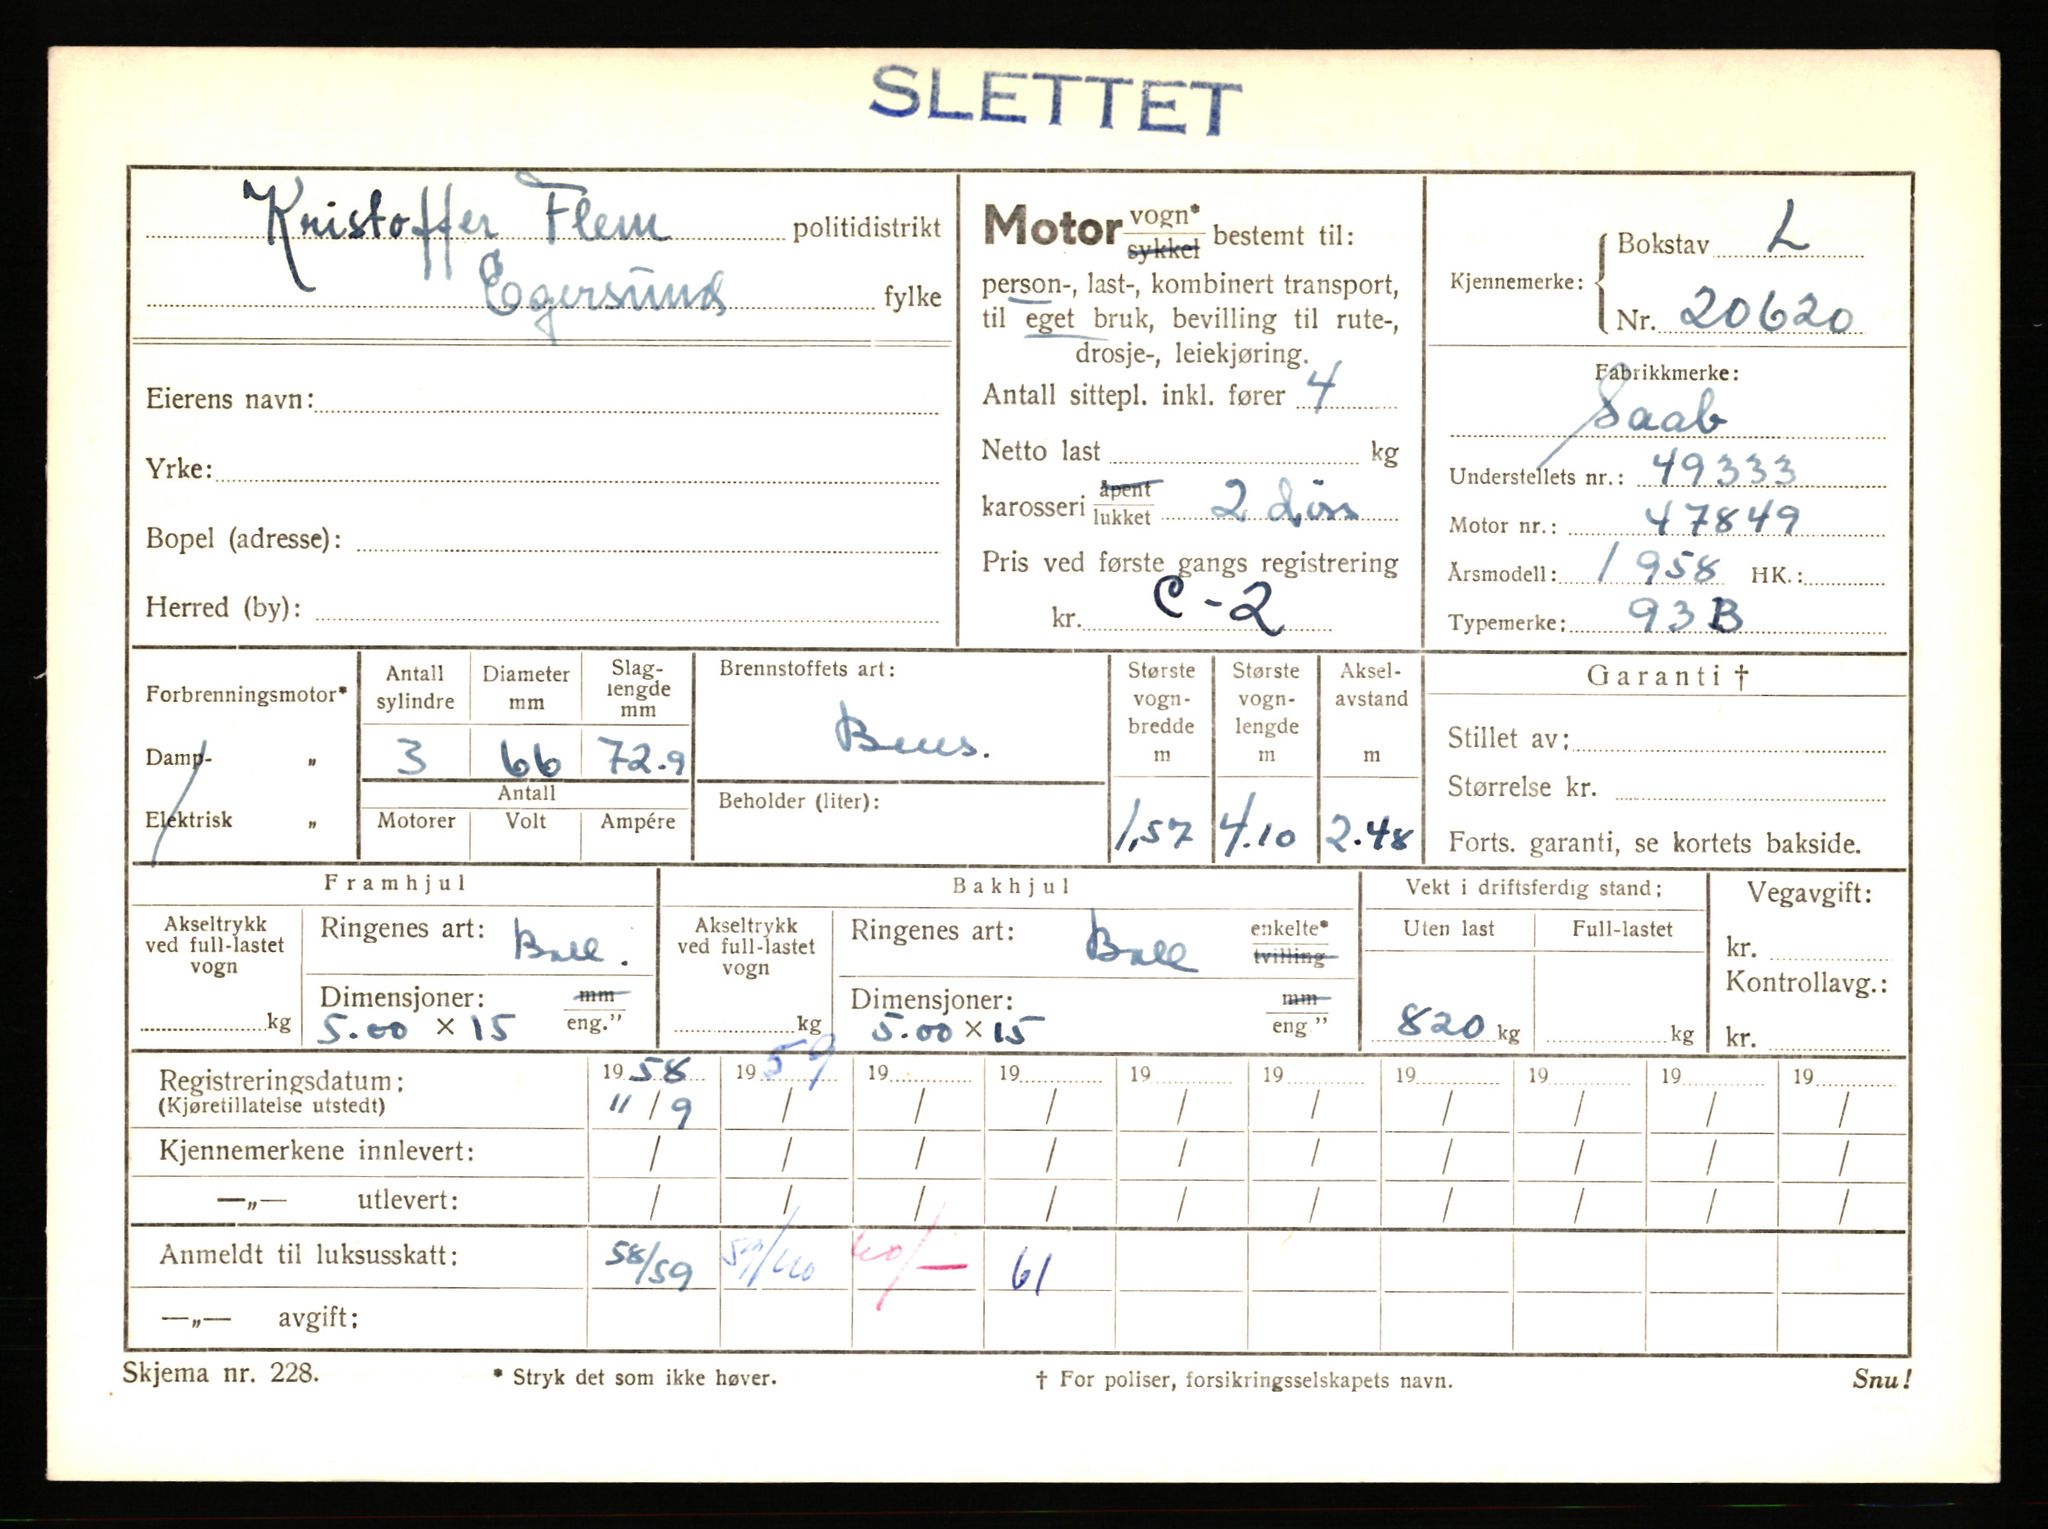 SLETTET
Kristoffer Flem politidistrikt
Egersund fylke
Eierens navn:
Yrke:
Bopel (adresse):
Herred (by):
Motor vogn* sykkel bestemt til:
person-, last-, kombinert transport,
til eget bruk, bevilling til rute-,
drosje-, leiekjøring.
Antall sittepl. inkl. fører 4
Netto last kg
karosseri åpent lukket 2 dörs
Pris ved første gangs registrering
kr. C-2
Kjennemerke: Bokstav L
Nr. 20620
Fabrikkmerke:
Saab
Understellets nr.: 49333
Motor nr.: 47849
Årsmodell: 1958 HK.:
Typemerke: 93B
Forbrenningsmotor*
Damp- „
Elektrisk „
Antall sylindre
3
Diameter mm
66
Slaglengde mm
72.9
Antall
Motorer Volt Ampére
Brennstoffets art:
Bens.
Beholder (liter):
Største vognbredde m
1,57
Største vognlengde m
4.10
Akselavstand m
2.48
Garanti †
Stillet av:
Størrelse kr.
Forts. garanti, se kortets bakside.
Framhjul
Akseltrykk
ved full-lastet
vogn
kg
Ringenes art: Ball.
Dimensjoner: mm eng."
5.00 × 15
Bakhjul
Akseltrykk
ved full-lastet
vogn
kg
Ringenes art: Ball enkelte* tvilling
Dimensjoner: mm eng"
5.00 × 15
Vekt i driftsferdig stand:
Uten last Full-lastet
820 kg kg
Vegavgift:
kr.
Kontrollavg.:
kr.
Registreringsdatum: 1958 1959 19 19 19 19 19 19 19 19
(Kjøretillatelse utstedt) 11/9 / / / / / / / / /
Kjennemerkene innlevert: / / / / / / / / / /
—„— utlevert: / / / / / / / / / /
Anmeldt til luksusskatt: 58/59 59/60 60/— 61
—„— avgift:
Skjema nr. 228. * Stryk det som ikke høver. † For poliser, forsikringsselskapets navn. Snu!